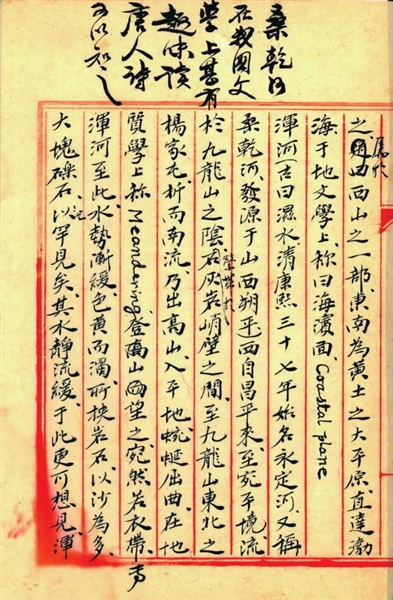 桑乾河
在我國文
學上甚有
趣味讀
唐人詩
可以知之
之屬於西山之一部、東南為黃土之大平原、直達渤
海于地文學上、稱曰海濱面、Coastal plane
渾河（古曰濕水、清康熙三十七年、始名永定河、又稱
桑乾河、發源于山西朔平、西自昌平來、至宛平境、流
於九龍山之陰、石灰岩峭壁之間、至九龍山東北之
楊家屯、折而南流、乃出高山、入平地、蜿蜒屈曲、在地
質學上稱Meandering、登高山西望之、宛然若衣帶焉
渾河至此、水勢漸緩、色黃而濁、所挾岩石、以沙為多、
大塊礫石、以罕見矣、其水靜流緩、于此更可想見、渾